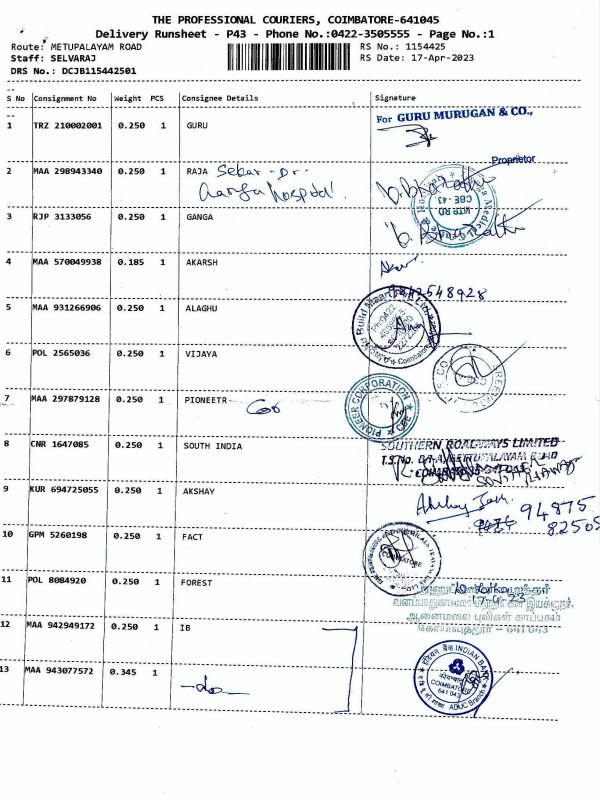 THE PROFESSIONAL COURIERS, COIMBATORE-641045
Delivery Runsheet - P43 - Phone No.:0422-3505555 - Page No.:1
Route: METUPALAYAM ROAD RS No.: 1154425
Staff: SELVARAJ RS Date: 17-Apr-2023
DRS No.: DCJB115442501
S No Consignment No Weight PCS Consignee Details Signature
1 TRZ 210002001 0.250 1 GURU For GURU MURUGAN & CO.,
Proprietor
2 MAA 298943340 0.250 1 RAJA Sekar - Dr.
Ganga hospital.
MTP RD
CBE - 43
3 RJP 3133056 0.250 1 GANGA
4 MAA 570049938 0.185 1 AKARSH
5 MAA 931266906 0.250 1 ALAGHU
6 POL 2565036 0.250 1 VIJAYA
7 MAA 297879128 0.250 1 PIONEETR PIONEER CORPORATION
8 CNR 1647085 0.250 1 SOUTH INDIA SOUTHERN ROADWAYS LIMITED
9 KUR 694725055 0.250 1 AKSHAY Akshay
94875
82505
10 GPM 5260198 0.250 1 FACT COIMBATORE
11 POL 8084920 0.250 1 FOREST
17-4-23
ஆனைமலை புலிகள் காப்பகம்
கோயம்புத்தூர் - 641 043
12 MAA 942949172 0.250 1 IB
13 MAA 943077572 0.345 1 -do-
इंडियन बैंक INDIAN BANK
कोयम्बतूर
COIMBATORE
641 043
ADUC Branch